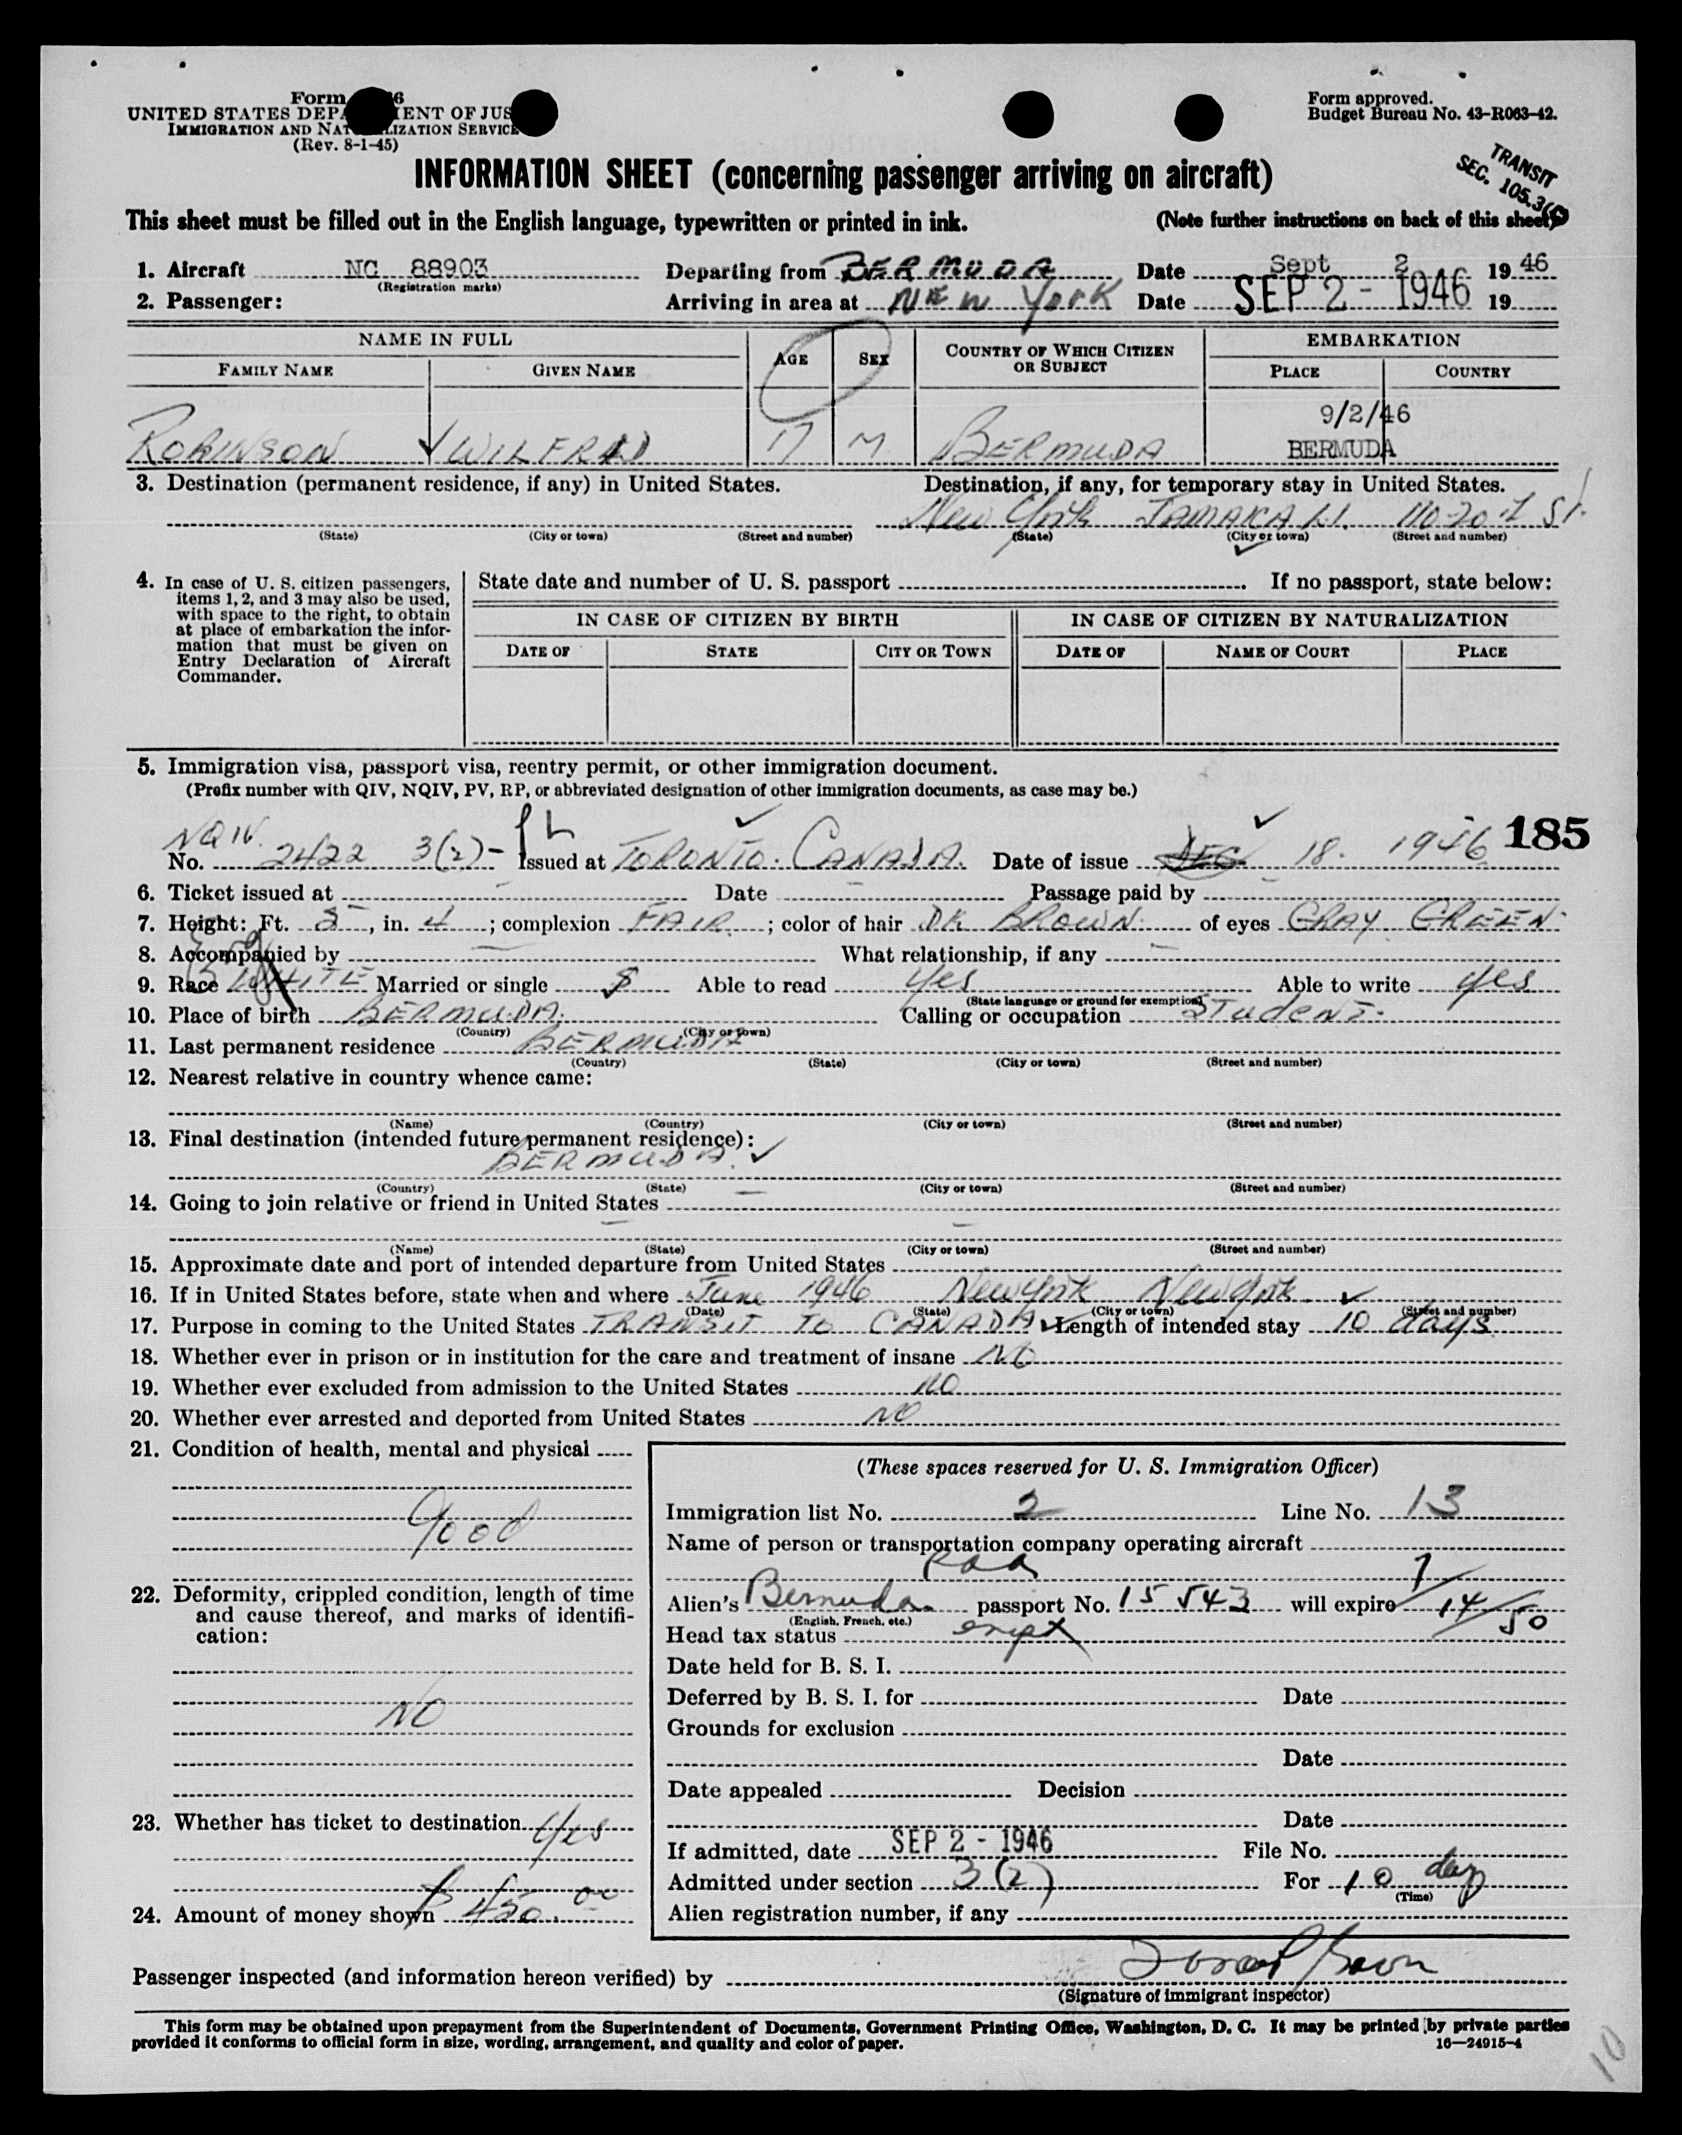 Form 6
UNITED STATES DEPA ENT OF JUS
IMMIGRATION AND NAT LIZATION SERVICE
(Rev. 8-1-45)
Form approved.
Budget Bureau No. 43-R063-42.
INFORMATION SHEET (concerning passenger arriving on aircraft)
TRANSIT
SEC. 105.3(
This sheet must be filled out in the English language, typewritten or printed in ink. (Note further instructions on back of this sheet)
1. Aircraft NC 88903 Departing from BERMUDA Date Sept 2 19 46
(Registration marks)
2. Passenger: Arriving in area at NEW York Date SEP 2 - 1946 19
NAME IN FULL AGE SEX COUNTRY OF WHICH CITIZEN OR SUBJECT EMBARKATION
FAMILY NAME GIVEN NAME PLACE COUNTRY
9/2/46
ROBINSON WILFRED 17 M BERMUDA BERMUDA
3. Destination (permanent residence, if any) in United States. Destination, if any, for temporary stay in United States.
New York JAMAICA 110-20 St.
(State) (City or town) (Street and number) (State) (City or town) (Street and number)
4. In case of U. S. citizen passengers, items 1, 2, and 3 may also be used, with space to the right, to obtain at place of embarkation the information that must be given on Entry Declaration of Aircraft Commander.
State date and number of U. S. passport If no passport, state below:
IN CASE OF CITIZEN BY BIRTH IN CASE OF CITIZEN BY NATURALIZATION
DATE OF STATE CITY OR TOWN DATE OF NAME OF COURT PLACE
5. Immigration visa, passport visa, reentry permit, or other immigration document.
(Prefix number with QIV, NQIV, PV, RP, or abbreviated designation of other immigration documents, as case may be.)
NQIV.
No. 2422 3(2)- Issued at TORONTO. CANADA. Date of issue 18. 1946 185
6. Ticket issued at Date Passage paid by
7. Height: Ft. 5, in. 4; complexion FAIR; color of hair DK BROWN. of eyes GRAY GREEN.
8. Accompanied by What relationship, if any
Eng
9. Race WHITE Married or single S Able to read yes Able to write yes
(State language or ground for exemption)
10. Place of birth BERMUDA. Calling or occupation STUDENT.
(Country) (City or town)
11. Last permanent residence BERMUDA
(Country) (State) (City or town) (Street and number)
12. Nearest relative in country whence came:
(Name) (Country) (City or town) (Street and number)
13. Final destination (intended future permanent residence):
BERMUDA.
(Country) (State) (City or town) (Street and number)
14. Going to join relative or friend in United States
(Name) (State) (City or town) (Street and number)
15. Approximate date and port of intended departure from United States
16. If in United States before, state when and where June 1946 New York New York
(Date) (State) (City or town) (Street and number)
17. Purpose in coming to the United States TRANSIT TO CANADA Length of intended stay 10 days
18. Whether ever in prison or in institution for the care and treatment of insane NO
19. Whether ever excluded from admission to the United States NO
20. Whether ever arrested and deported from United States NO
21. Condition of health, mental and physical
Good
22. Deformity, crippled condition, length of time and cause thereof, and marks of identification:
NO
23. Whether has ticket to destination Yes
24. Amount of money shown $ 450.00
(These spaces reserved for U. S. Immigration Officer)
Immigration list No. 2 Line No. 13
Name of person or transportation company operating aircraft
Paa
Alien's Bermuda passport No. 15543 will expire 7/14/50
(English, French, etc.)
Head tax status
Date held for B. S. I.
Deferred by B. S. I. for Date
Grounds for exclusion
Date
Date appealed Decision
Date
If admitted, date SEP 2 - 1946 File No.
Admitted under section 3(2) For 10 day
(Time)
Alien registration number, if any
Passenger inspected (and information hereon verified) by
(Signature of immigrant inspector)
This form may be obtained upon prepayment from the Superintendent of Documents, Government Printing Office, Washington, D. C. It may be printed by private parties
provided it conforms to official form in size, wording, arrangement, and quality and color of paper. 16—24915-4
10